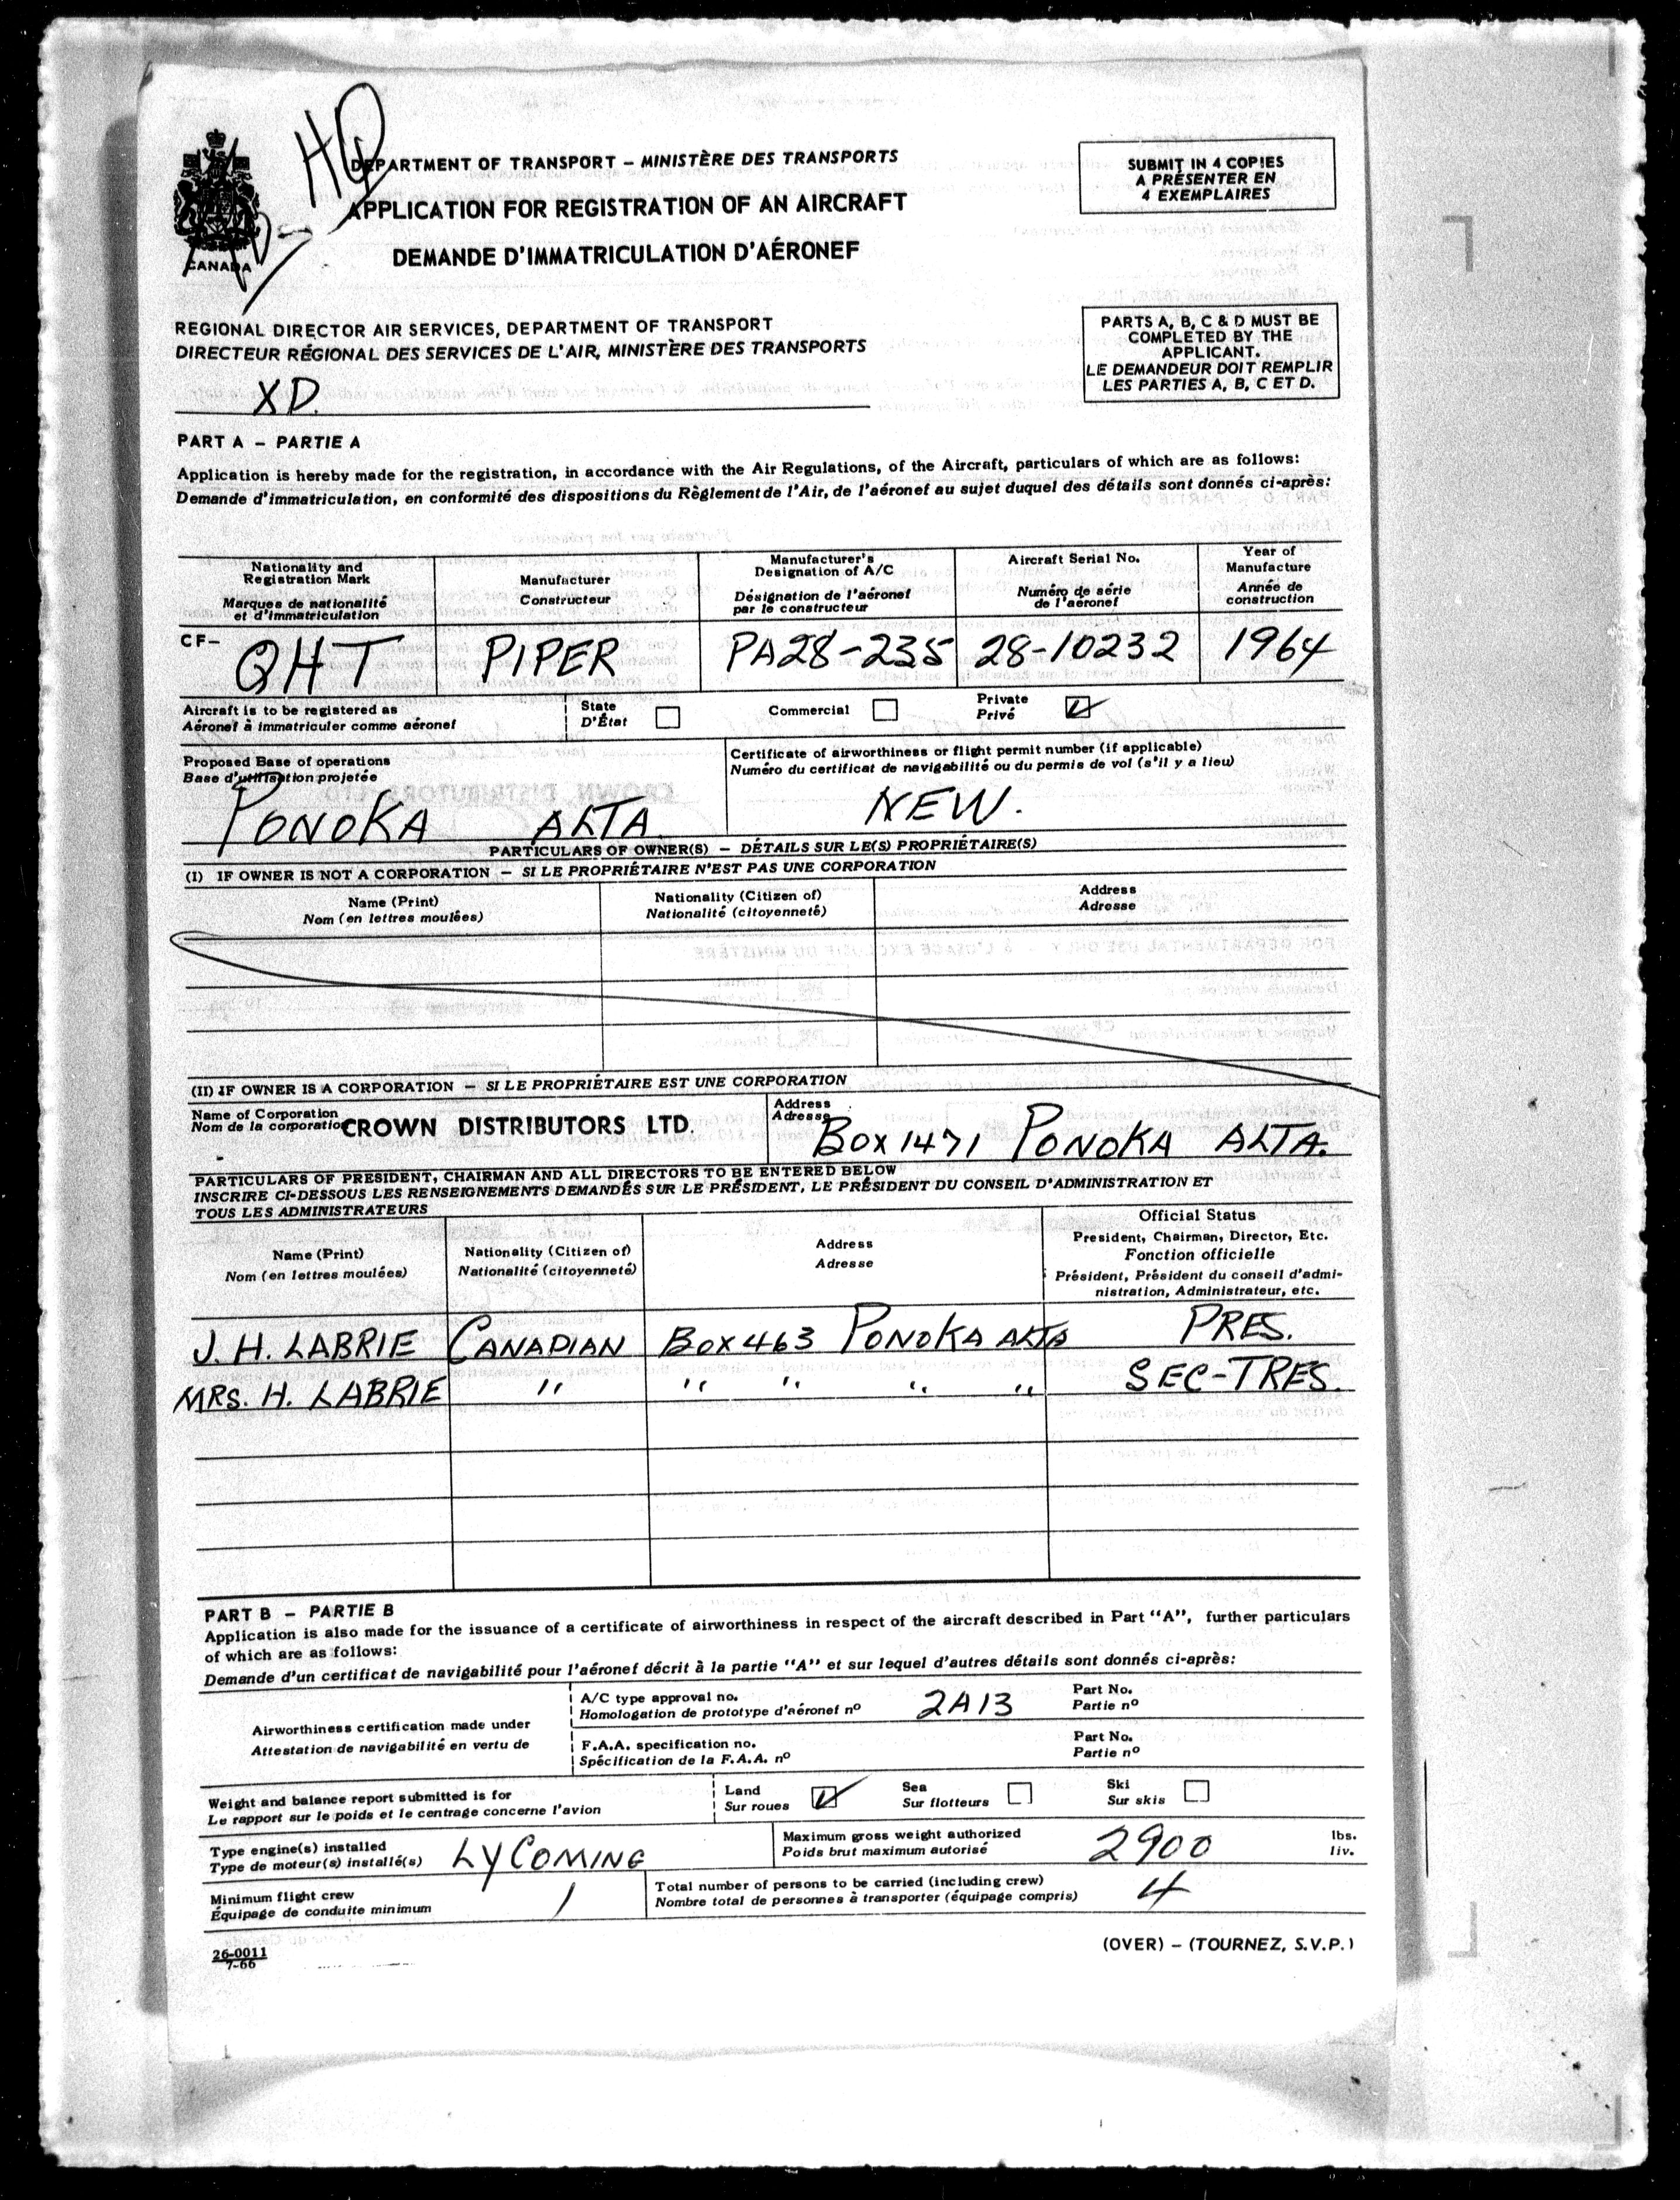 HQ
DEPARTMENT OF TRANSPORT – MINISTÈRE DES TRANSPORTS
APPLICATION FOR REGISTRATION OF AN AIRCRAFT
DEMANDE D'IMMATRICULATION D'AÉRONEF
CANADA
SUBMIT IN 4 COPIES
A PRÉSENTER EN
4 EXEMPLAIRES
REGIONAL DIRECTOR AIR SERVICES, DEPARTMENT OF TRANSPORT
DIRECTEUR RÉGIONAL DES SERVICES DE L'AIR, MINISTÈRE DES TRANSPORTS
XD.
PARTS A, B, C & D MUST BE
COMPLETED BY THE
APPLICANT.
LE DEMANDEUR DOIT REMPLIR
LES PARTIES A, B, C ET D.
PART A – PARTIE A
Application is hereby made for the registration, in accordance with the Air Regulations, of the Aircraft, particulars of which are as follows:
Demande d'immatriculation, en conformité des dispositions du Règlement de l'Air, de l'aéronef au sujet duquel des détails sont donnés ci-après:
Nationality and
Registration Mark
Marques de nationalité
et d'immatriculation
Manufacturer
Constructeur
Manufacturer's
Designation of A/C
Désignation de l'aéronef
par le constructeur
Aircraft Serial No.
Numéro de série
de l'aéronef
Year of
Manufacture
Année de
construction
CF– QHT PIPER PA28-235 28-10232 1964
Aircraft is to be registered as
Aéronef à immatriculer comme aéronef
State
D'État
Commercial
Private
Privé
Proposed Base of operations
Base d'utilisation projetée
PONOKA ALTA.
Certificate of airworthiness or flight permit number (if applicable)
Numéro du certificat de navigabilité ou du permis de vol (s'il y a lieu)
NEW.
PARTICULARS OF OWNER(S) – DÉTAILS SUR LE(S) PROPRIÉTAIRE(S)
(I) IF OWNER IS NOT A CORPORATION – SI LE PROPRIÉTAIRE N'EST PAS UNE CORPORATION
Name (Print)
Nom (en lettres moulées)
Nationality (Citizen of)
Nationalité (citoyenneté)
Address
Adresse
(II) IF OWNER IS A CORPORATION – SI LE PROPRIÉTAIRE EST UNE CORPORATION
Name of Corporation
Nom de la corporation
CROWN DISTRIBUTORS LTD.
Address
Adresse
BOX 1471 PONOKA ALTA.
PARTICULARS OF PRESIDENT, CHAIRMAN AND ALL DIRECTORS TO BE ENTERED BELOW
INSCRIRE CI-DESSOUS LES RENSEIGNEMENTS DEMANDÉS SUR LE PRÉSIDENT, LE PRÉSIDENT DU CONSEIL D'ADMINISTRATION ET
TOUS LES ADMINISTRATEURS
Name (Print)
Nom (en lettres moulées)
Nationality (Citizen of)
Nationalité (citoyenneté)
Address
Adresse
Official Status
President, Chairman, Director, Etc.
Fonction officielle
Président, Président du conseil d'admi-
nistration, Administrateur, etc.
J. H. LABRIE CANADIAN BOX 463 PONOKA ALTA PRES.
MRS. H. LABRIE " " " " " SEC-TRES.
PART B – PARTIE B
Application is also made for the issuance of a certificate of airworthiness in respect of the aircraft described in Part "A", further particulars
of which are as follows:
Demande d'un certificat de navigabilité pour l'aéronef décrit à la partie "A" et sur lequel d'autres détails sont donnés ci-après:
Airworthiness certification made under
Attestation de navigabilité en vertu de
A/C type approval no.
Homologation de prototype d'aéronef nº
2A13
Part No.
Partie nº
F.A.A. specification no.
Spécification de la F.A.A. nº
Part No.
Partie nº
Weight and balance report submitted is for
Le rapport sur le poids et le centrage concerne l'avion
Land
Sur roues
Sea
Sur flotteurs
Ski
Sur skis
Type engine(s) installed
Type de moteur(s) installé(s)
LYCOMING
Maximum gross weight authorized
Poids brut maximum autorisé
2900
lbs.
liv.
Minimum flight crew
Équipage de conduite minimum
1
Total number of persons to be carried (including crew)
Nombre total de personnes à transporter (équipage compris)
4
26-0011
7-66
(OVER) – (TOURNEZ, S.V.P.)